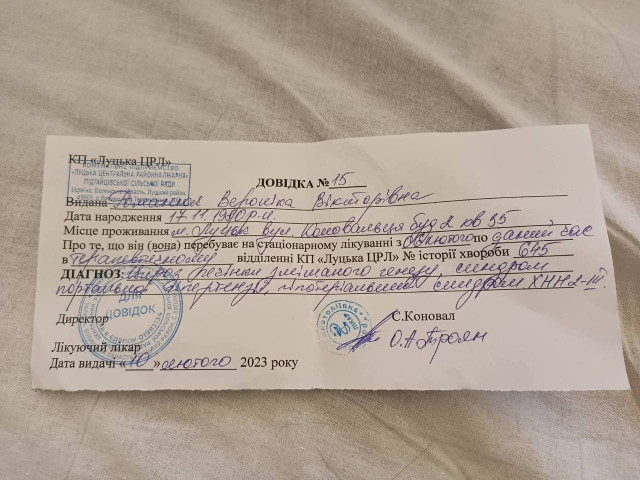 КП «Луцька ЦРЛ»
КОМУНАЛЬНЕ ПІДПРИЄМСТВО
«ЛУЦЬКА ЦЕНТРАЛЬНА РАЙОННА ЛІКАРНЯ»
ПІДГАЙЦІВСЬКОЇ СІЛЬСЬКОЇ РАДИ
ДОВІДКА № 15
Видана Вероніка Вікторівна
Дата народження 17.11.1980р.н.
Місце проживання м. Луцьк вул. Коновальця буд 2 кв 35
Про те, що він (вона) перебуває на стаціонарному лікуванні з лютого по даний час
в терапевтичному відділенні КП «Луцька ЦРЛ» № історії хвороби 645
ДІАГНОЗ: Цироз печінки змішаного генезу, синдром
портальної гіпертензії, синдром ХНН 2-III.
ДЛЯ ДОВІДОК
Директор С.Коновал
Лікуючий лікар О.А Троян
Дата видачі «10» лютого 2023 року